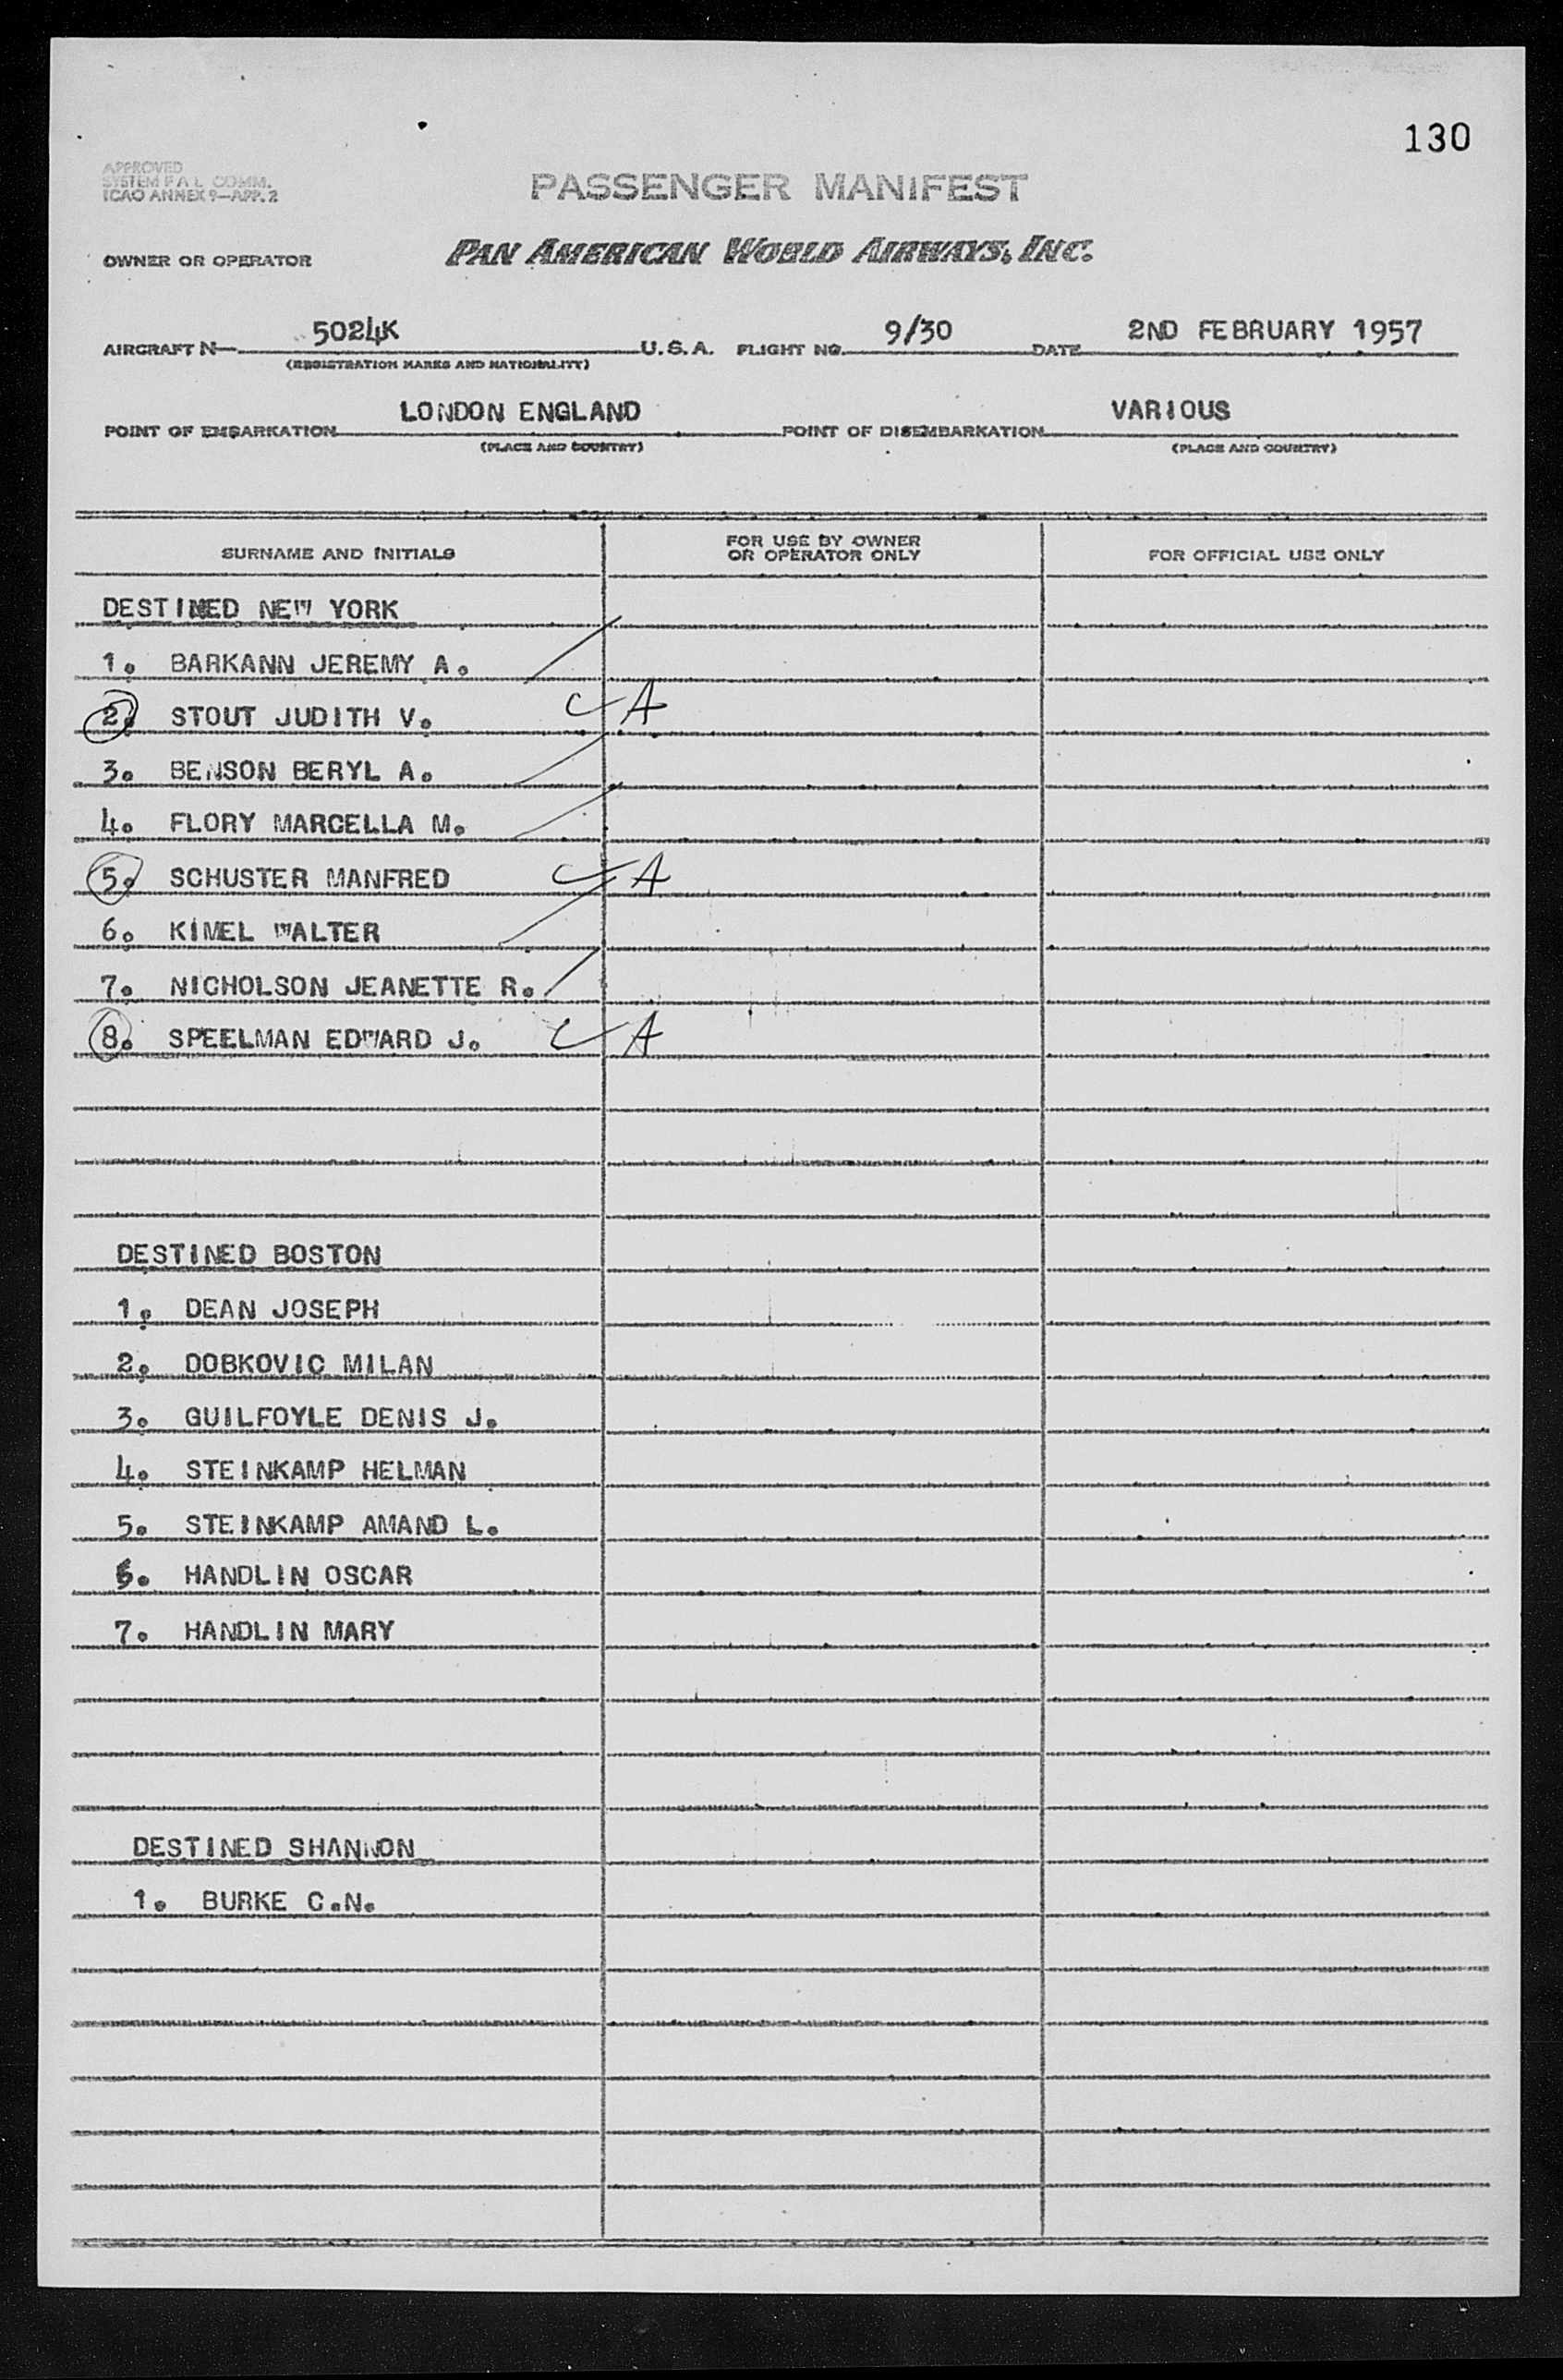 130
APPROVED
SYSTEM F A L COMM.
ICAO ANNEX 9—APP. 2
PASSENGER MANIFEST
OWNER OR OPERATOR PAN AMERICAN WORLD AIRWAYS, INC.
AIRCRAFT N— 5024K U.S.A. FLIGHT NO. 9/30 DATE 2ND FEBRUARY 1957
(REGISTRATION MARKS AND NATIONALITY)
POINT OF EMBARKATION LONDON ENGLAND POINT OF DISEMBARKATION VARIOUS
(PLACE AND COUNTRY) (PLACE AND COUNTRY)
SURNAME AND INITIALS FOR USE BY OWNER OR OPERATOR ONLY FOR OFFICIAL USE ONLY
DESTINED NEW YORK
1. BARKANN JEREMY A.
2. STOUT JUDITH V. A
3. BENSON BERYL A.
4. FLORY MARCELLA M.
5. SCHUSTER MANFRED A
6. KIMEL WALTER
7. NICHOLSON JEANETTE R.
8. SPEELMAN EDWARD J. A
DESTINED BOSTON
1. DEAN JOSEPH
2. DOBKOVIC MILAN
3. GUILFOYLE DENIS J.
4. STEINKAMP HELMAN
5. STEINKAMP AMAND L.
6. HANDLIN OSCAR
7. HANDLIN MARY
DESTINED SHANNON
1. BURKE C.N.